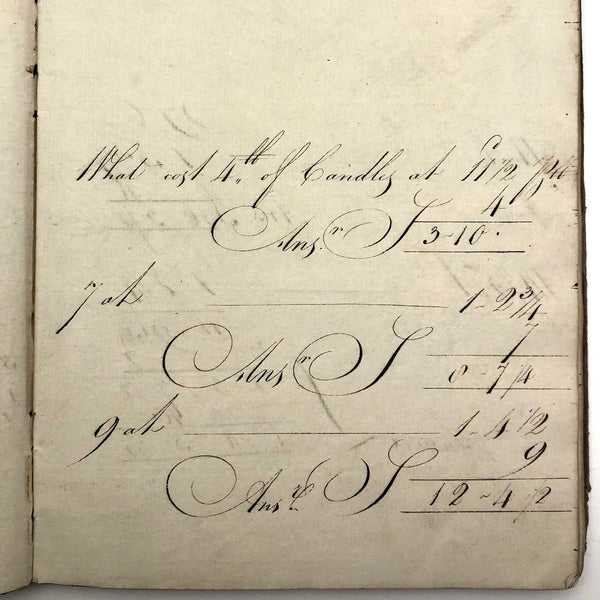 What cost 4 lb of Candles at 11 1/2 d p lb
4
Ansr S 3-10
7 at 1-2 3/4
7
Ansr S 8-7 1/4
9 at 1-4 1/2
9
Ansr S 12-4 1/2